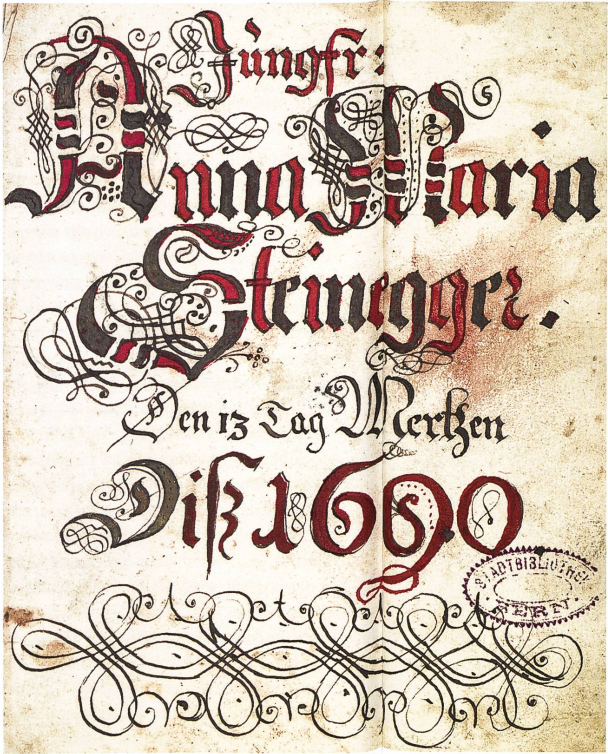 Jùngfr:
Anna Maria
Steinegger.
Den 13 Tag Mertzen
Diß 1690
STADTBIBLIOTHEK
BERN.